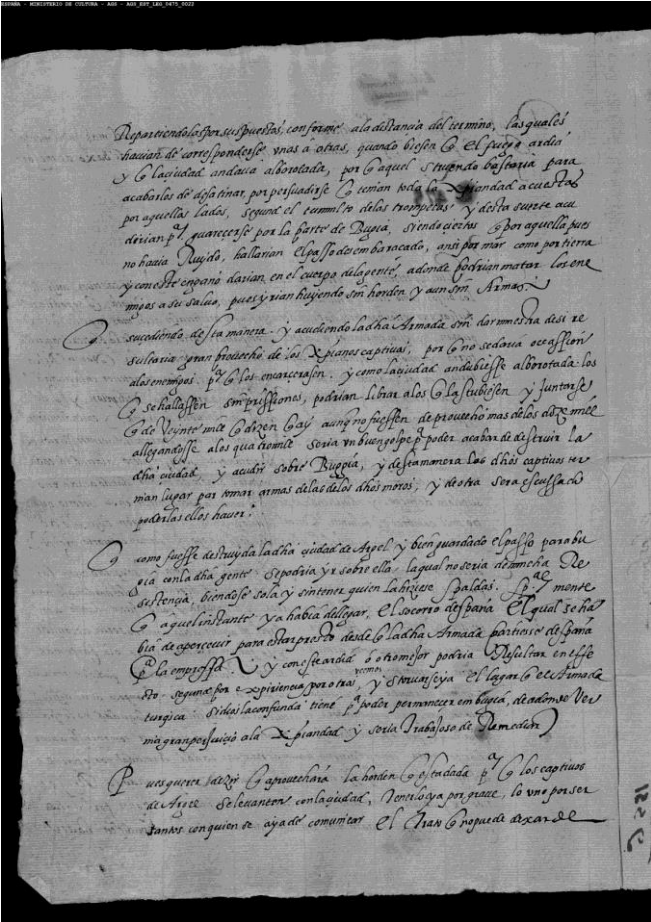 ESPAÑA - MINISTERIO DE CULTURA - AGS - AGS_EST_LEG_0475_0022
Repartiendolas por sus puestos, conforme a la distancia del termino, las quales
havian de corresponderse unas a otras, quando biesen q̃ el fuego ardia
y q̃ la ciudad andava alborotada, por q̃ aquel estruendo bastaria para
acabarlos de desatinar, por persuadirse q̃ tenian toda la xp̃iandad acuestas
por aquellos lados, segund el tumulto de las trompetas y desta suerte acu
dirian pª guarecerse por la parte de Bugia, siendo ciertos q̃ por aquella pues
no havia Ruydo, hallarian el passo desembaracado, ansi por mar como por tierra
y con este engaño darian en el cuerpo de la gente, adonde podrian matar los ene
migos a su salvo, pues yrian huyendo sin horden y aun sin Armas
sucediendo desta manera y acudiendo la dhã Armada sin dar muestra de si re
sultaria gran provecho de los xp̃ianos captivos, por q̃ no se daria ocassion
a los enemigos pª q̃ los encarcerasen, y como la ciudad andubiesse alborotada los
q̃ se hallassen sin prissiones, podrian librar a los q̃ la stubiesen y Juntarse
q̃ de veynte mil q̃ dizen q̃ ay aunq̃ no fuessen de provecho mas de los doze mill
allegandosse a los quatro mill seria un buen golpe pª poder acabar de destruir la
dhã ciudad, y acudir sobre Buggia, y desta manera los dhõs captivos ter
nian lugar par tomar armas de las de los dhõs moros, y de otra sera escussado
poderlas ellos haver:
como fuesse destruyda la dhã ciudad de Argel y bien guardado el passo para bu
gia con la dhã gente se podria yr sobre ella, la qual no seria de mucha Re
sistencia, biendose sola y sin tener quien la hiziese spaldas. spãlmente
q̃ aquel instante ya habia de llegar, el socorro de spaña el qual se ha
bia de apercevir para estar presto desde q̃ la dhã Armada partiese de spaña
pª la empressa. y con este ardid o otro mejor podria Resultar en effe
cto segund por expiriencia por otras vemos, y storvarse ya el lugar q̃ el Armada
turquesca si dios la confunda tiene pª poder permanecer en bugia, de adonde ver
nia gran perjuicio a la xp̃iandad y seria trabajoso de Remediar
Pues querer dezir q̃ aprovechara la horden q̃ esta dada pª q̃ los captivos
de Argel se levanten con la ciudad, tenerlo ya por grave, lo uno por ser
tantos con quien se aya de comunicar el trato q̃ no puede dexar de